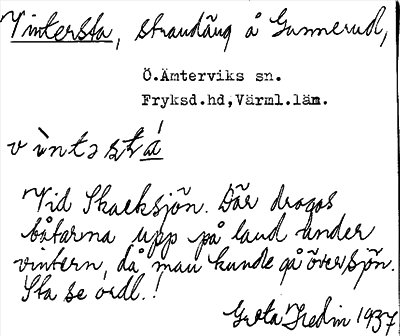 Vintersta, strandäng å Gunnerud,
Ö.Ämterviks sn.
Fryksd.hd,Värml.län.
vìntəstá
Vid Skacksjön. Där drogos
båtarna upp på land under
vintern, då man kunde gå över sjön.
Sta se ordl.!
Greta Hedin 1937